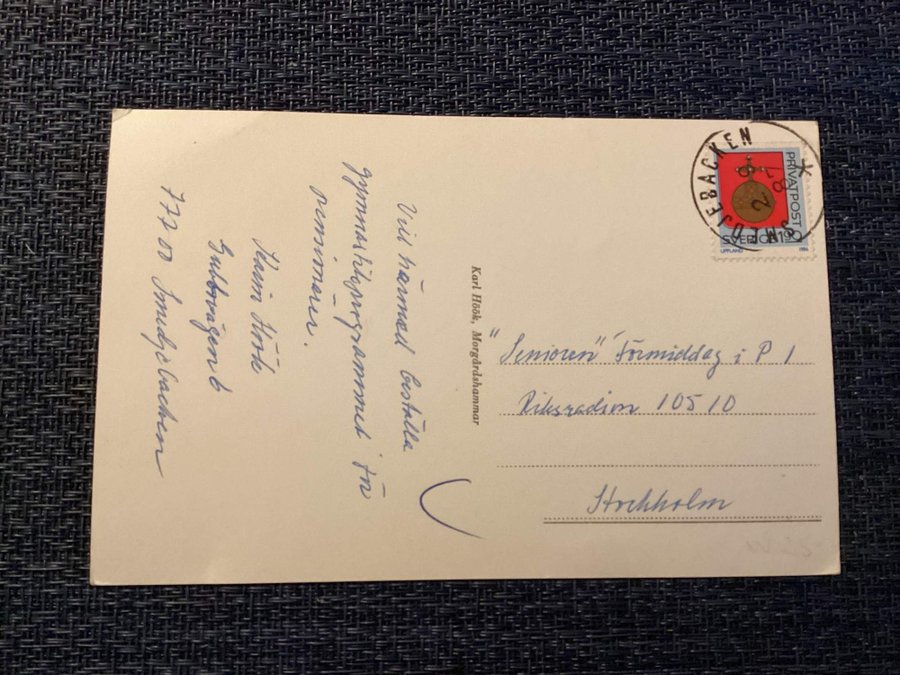 Vill härmed beställa
gymnastikprogrammet för
seniorer.
Karin Höök
Gubbovägen 6
777 00 Smedjebacken
Karl Höök, Morgårdshammar
"Senioren" Förmiddag i P 1
Riksradion 105 10
Stockholm
SMEDJEBACKEN
PRIVATPOST
SVERIGE
UPPLAND